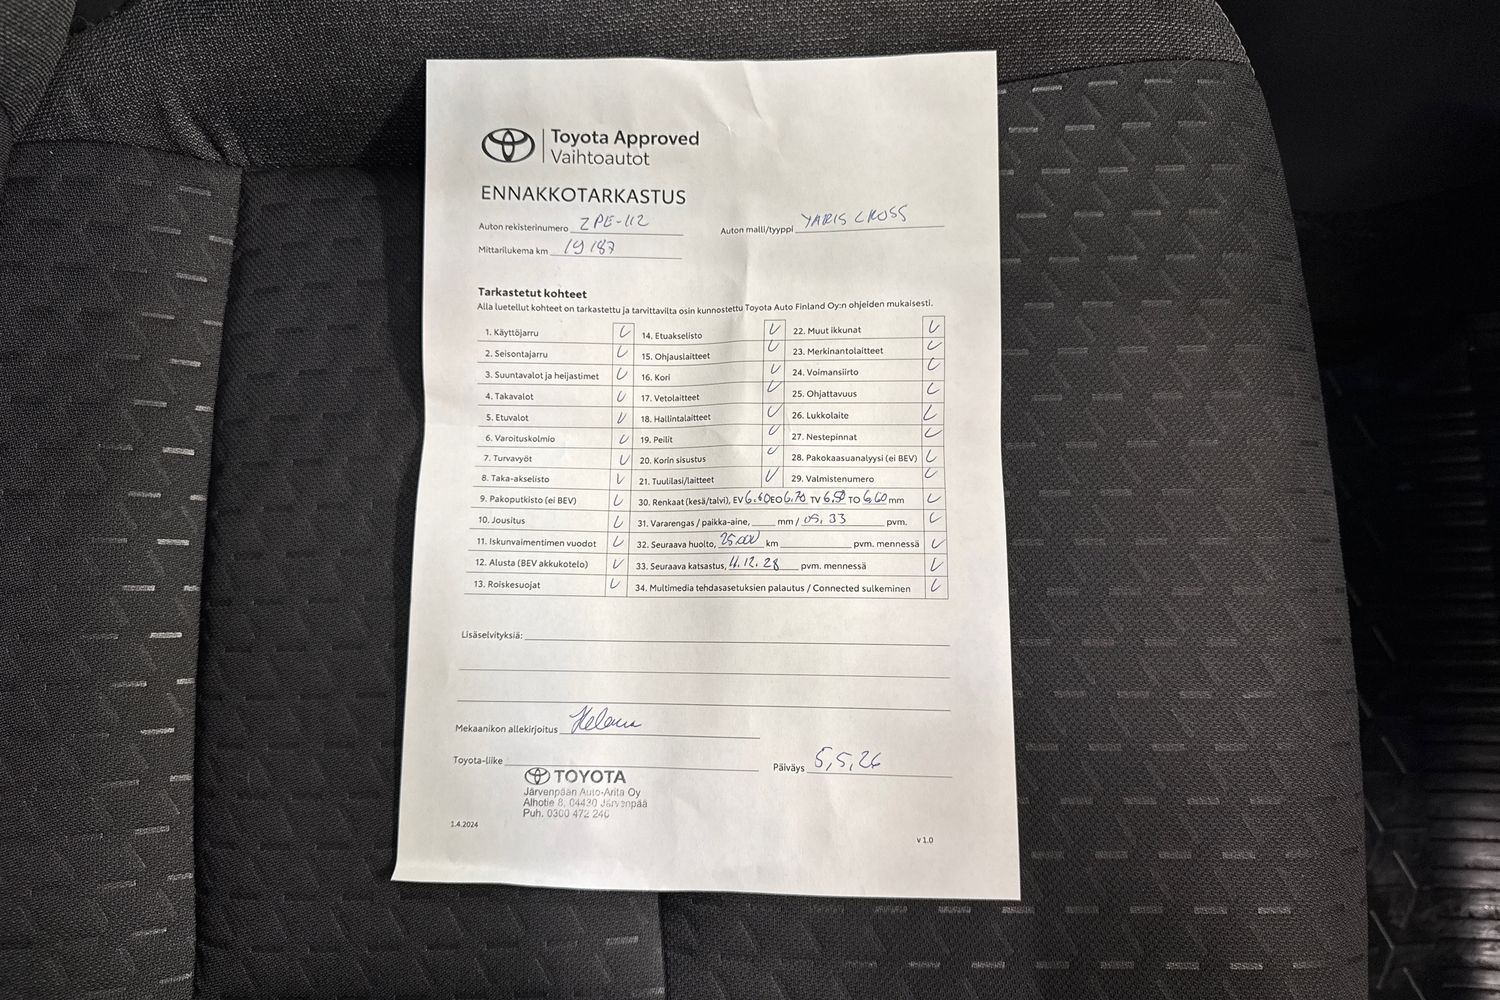 Toyota Approved
Vaihtoautot
ENNAKKOTARKASTUS
Auton rekisterinumero ZPE-112 Auton malli/tyyppi YARIS CROSS
Mittarilukema km 19 187
Tarkastetut kohteet
Alla luetellut kohteet on tarkastettu ja tarvittavilta osin kunnostettu Toyota Auto Finland Oy:n ohjeiden mukaisesti.
1. Käyttöjarru
2. Seisontajarru
3. Suuntavalot ja heijastimet
4. Takavalot
5. Etuvalot
6. Varoituskolmio
7. Turvavyöt
8. Taka-akselisto
9. Pakoputkisto (ei BEV)
10. Jousitus
11. Iskunvaimentimen vuodot
12. Alusta (BEV akkukotelo)
13. Roiskesuojat
14. Etuakselisto
15. Ohjauslaitteet
16. Kori
17. Vetolaitteet
18. Hallintalaitteet
19. Peilit
20. Korin sisustus
21. Tuulilasi/laitteet
22. Muut ikkunat
23. Merkinantolaitteet
24. Voimansiirto
25. Ohjattavuus
26. Lukkolaite
27. Nestepinnat
28. Pakokaasuanalyysi (ei BEV)
29. Valmistenumero
30. Renkaat (kesä/talvi), EV 6.60 EO 6.70 TV 6,50 TO 6,60 mm
31. Vararengas / paikka-aine, mm / 05.33 pvm.
32. Seuraava huolto, 25.000 km pvm. mennessä
33. Seuraava katsastus, 4.12.28 pvm. mennessä
34. Multimedia tehdasasetuksien palautus / Connected sulkeminen
Lisäselvityksiä:
Mekaanikon allekirjoitus
Toyota-liike Päiväys 5,5,26
TOYOTA
Järvenpään Auto-Arita Oy
Alhotie 8, 04430 Järvenpää
Puh. 0300 472 240
1.4.2024
v 1.0